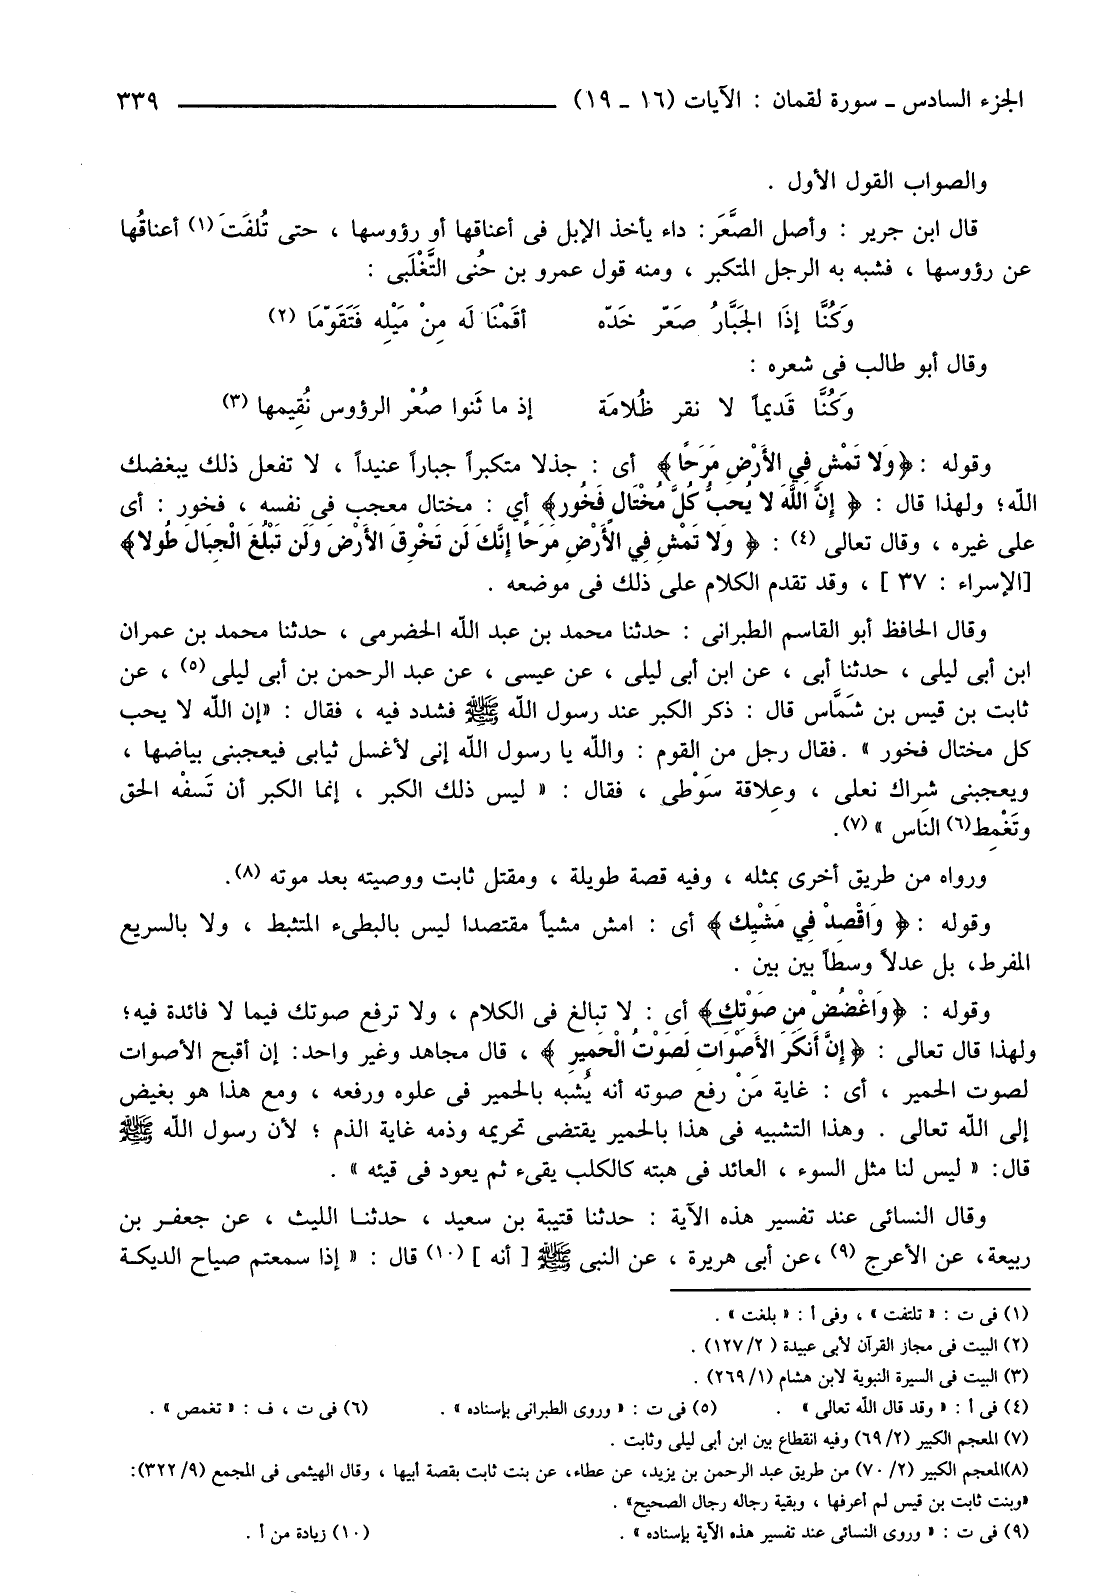 الجزء السادس ـ سورة لقمان : الآيات (١٦ ـ ١٩) ٣٣٩
والصواب القول الأول .
قال ابن جرير : وأصل الصَّعَر: داء يأخذ الإبل فى أعناقها أو رؤوسها ، حتى تُلفَتَ (١) أعناقُها
عن رؤوسها ، فشبه به الرجل المتكبر ، ومنه قول عمرو بن حُنى التَّغْلَبى :
وَكُنَّا إذَا الجَبَّارُ صَعّر خَدّه أقَمْنَا لَه مِنْ مَيْلِه فَتَقَوّمَا (٢)
وقال أبو طالب فى شعره :
وَكُنَّا قَديماً لا نقر ظُلامَة إذ ما ثَنوا صُعْر الرؤوس نُقِيمها (٣)
وقوله : ﴿وَلا تَمْشِ فِي الأَرْضِ مَرَحًا﴾ أى : جذلا متكبراً جباراً عنيداً ، لا تفعل ذلك يبغضك
الله؛ ولهذا قال : ﴿ إِنَّ اللَّهَ لا يُحِبُّ كُلَّ مُخْتَالٍ فَخُورٍ﴾ أي : مختال معجب فى نفسه ، فخور : أى
على غيره ، وقال تعالى (٤) : ﴿ وَلا تَمْشِ فِي الأَرْضِ مَرَحًا إِنَّكَ لَن تَخْرِقَ الأَرْضَ وَلَن تَبْلُغَ الْجِبَالَ طُولا﴾
[الإسراء : ٣٧ ] ، وقد تقدم الكلام على ذلك فى موضعه .
وقال الحافظ أبو القاسم الطبرانى : حدثنا محمد بن عبد الله الحضرمى ، حدثنا محمد بن عمران
ابن أبى ليلى ، حدثنا أبى ، عن ابن أبى ليلى ، عن عيسى ، عن عبد الرحمن بن أبى ليلى (٥) ، عن
ثابت بن قيس بن شَمَّاس قال : ذكر الكبر عند رسول الله ﷺ فشدد فيه ، فقال : «إن الله لا يحب
كل مختال فخور » .فقال رجل من القوم : والله يا رسول الله إنى لأغسل ثيابى فيعجبنى بياضها ،
ويعجبنى شِراك نعلى ، وعِلاقة سَوْطى ، فقال : « ليس ذلك الكبر ، إنما الكبر أن تَسفْه الحق
وتَغْمِط(٦) الناس » (٧).
ورواه من طريق أخرى بمثله ، وفيه قصة طويلة ، ومقتل ثابت ووصيته بعد موته (٨).
وقوله : ﴿ وَاقْصِدْ فِي مَشْيِكَ ﴾ أى : امش مشياً مقتصدا ليس بالبطىء المتثبط ، ولا بالسريع
المفرط، بل عدلاً وسطاً بين بين .
وقوله : ﴿وَاغْضُضْ مِن صَوْتِكَ﴾ أى : لا تبالغ فى الكلام ، ولا ترفع صوتك فيما لا فائدة فيه؛
ولهذا قال تعالى : ﴿إِنَّ أَنكَرَ الأَصْوَاتِ لَصَوْتُ الْحَمِيرِ ﴾ ، قال مجاهد وغير واحد: إن أقبح الأصوات
لصوت الحمير ، أى : غاية مَنْ رفع صوته أنه يُشبه بالحمير فى علوه ورفعه ، ومع هذا هو بغيض
إلى الله تعالى . وهذا التشبيه فى هذا بالحمير يقتضى تحريمه وذمه غاية الذم ؛ لأن رسول الله ﷺ
قال: « ليس لنا مثل السوء ، العائد فى هبته كالكلب يقىء ثم يعود فى قيئه » .
وقال النسائى عند تفسير هذه الآية : حدثنا قتيبة بن سعيد ، حدثنا الليث ، عن جعفر بن
ربيعة، عن الأعرج (٩) ،عن أبى هريرة ، عن النبى ﷺ [ أنه ] (١٠) قال : « إذا سمعتم صياح الديكة
(١) فى ت : « تلتفت » ، وفى أ : « بلغت » .
(٢) البيت فى مجاز القرآن لأبى عبيدة ( ١٢٧/٢) .
(٣) البيت فى السيرة النبوية لابن هشام (٢٦٩/١) .
(٤) فى أ : « وقد قال الله تعالى » . (٥) فى ت : « وروى الطبرانى بإسناده » . (٦) فى ت ، ف : « تغمص » .
(٧) المعجم الكبير (٦٩/٢) وفيه انقطاع بين ابن أبى ليلى وثابت .
(٨)المعجم الكبير (٧٠/٢) من طريق عبد الرحمن بن يزيد، عن عطاء، عن بنت ثابت بقصة أبيها ، وقال الهيثمى فى المجمع (٣٢٢/٩):
«وبنت ثابت بن قيس لم أعرفها ، وبقية رجاله رجال الصحيح» .
(٩) فى ت : « وروى النسائى عند تفسير هذه الآية بإسناده » . (١٠) زيادة من أ .